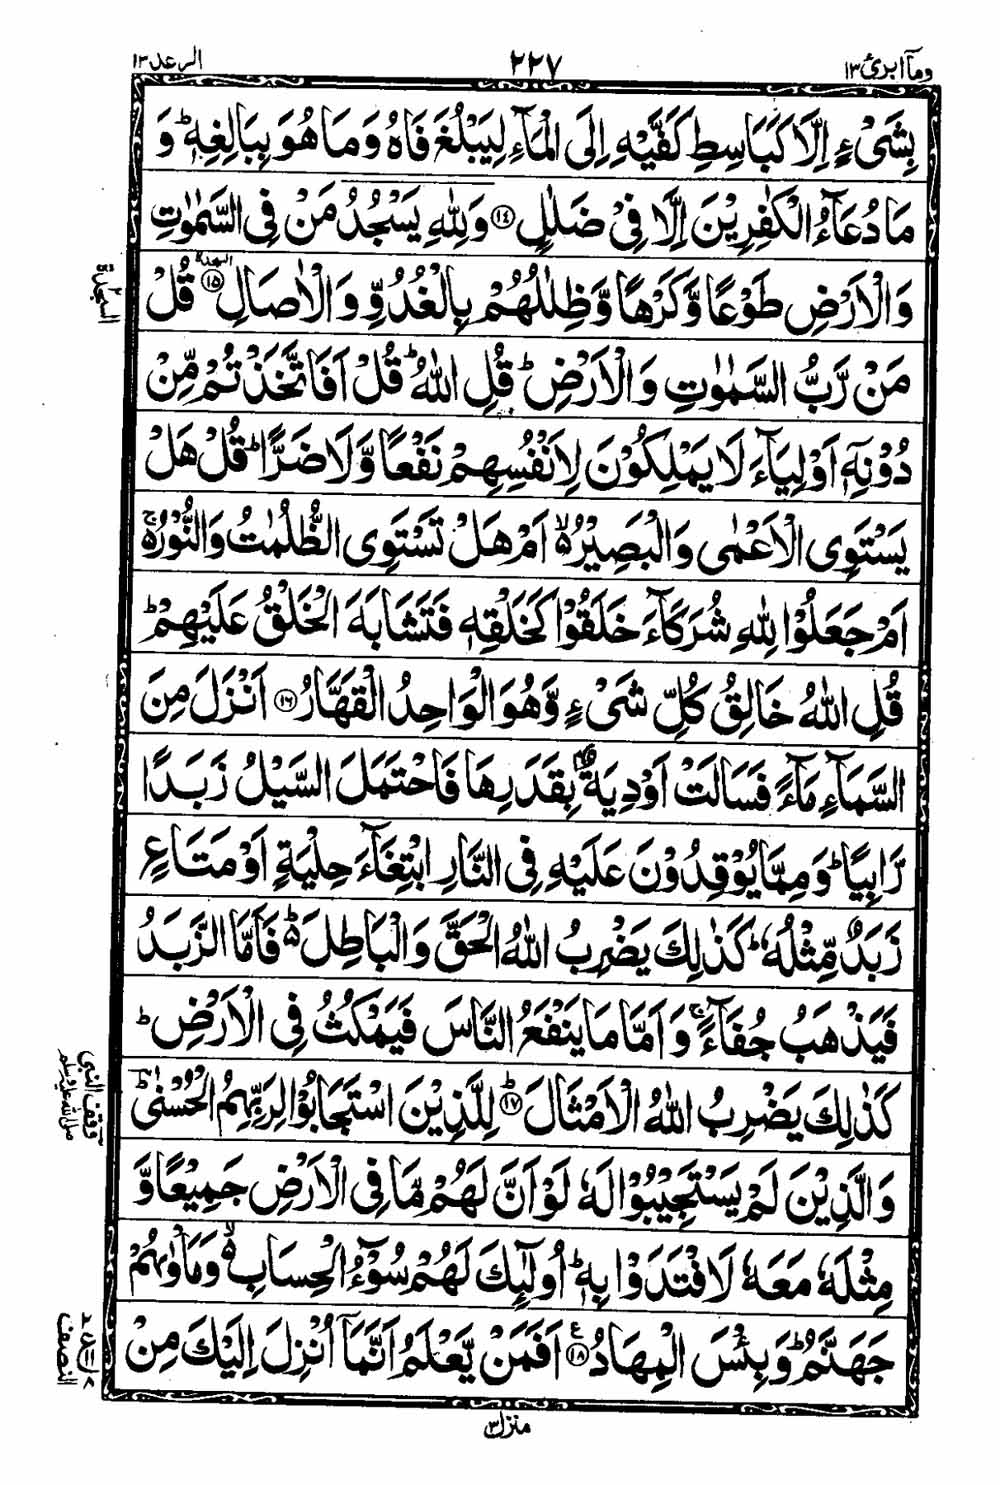 الرعد ١٣
٢٢٧
وما ابرئ ١٣
بِشَیْءٍ اِلَّا كَبَاسِطِ كَفَّیْهِ اِلَی الْمَآءِ لِیَبْلُغَ فَاهُ وَمَا هُوَ بِبَالِغِهٖ ؕ وَ
مَا دُعَآءُ الْكٰفِرِیْنَ اِلَّا فِیْ ضَلٰلٍ ﴿١٤﴾ وَلِلّٰهِ یَسْجُدُ مَنْ فِی السَّمٰوٰتِ
وَالْاَرْضِ طَوْعًا وَّكَرْهًا وَّظِلٰلُهُمْ بِالْغُدُوِّ وَالْاٰصَالِ ﴿١٥﴾ السجدة قُلْ
السجدة ٢
مَنْ رَّبُّ السَّمٰوٰتِ وَالْاَرْضِ ؕ قُلِ اللّٰهُ ؕ قُلْ اَفَاتَّخَذْتُمْ مِّنْ
دُوْنِهٖۤ اَوْلِیَآءَ لَا یَمْلِكُوْنَ لِاَنْفُسِهِمْ نَفْعًا وَّلَا ضَرًّا ؕ قُلْ هَلْ
یَسْتَوِی الْاَعْمٰی وَالْبَصِیْرُ ۙ۬ اَمْ هَلْ تَسْتَوِی الظُّلُمٰتُ وَالنُّوْرُ ۚ۬
اَمْ جَعَلُوْا لِلّٰهِ شُرَكَآءَ خَلَقُوْا كَخَلْقِهٖ فَتَشَابَهَ الْخَلْقُ عَلَیْهِمْ ؕ
قُلِ اللّٰهُ خَالِقُ كُلِّ شَیْءٍ وَّهُوَ الْوَاحِدُ الْقَهَّارُ ﴿١٦﴾ اَنْزَلَ مِنَ
السَّمَآءِ مَآءً فَسَالَتْ اَوْدِیَةٌۢ بِقَدَرِهَا فَاحْتَمَلَ السَّیْلُ زَبَدًا
رَّابِیًا ؕ وَمِمَّا یُوْقِدُوْنَ عَلَیْهِ فِی النَّارِ ابْتِغَآءَ حِلْیَةٍ اَوْ مَتَاعٍ
زَبَدٌ مِّثْلُهٗ ؕ كَذٰلِكَ یَضْرِبُ اللّٰهُ الْحَقَّ وَالْبَاطِلَ ؕ۬ فَاَمَّا الزَّبَدُ
فَیَذْهَبُ جُفَآءً ۚ وَاَمَّا مَا یَنْفَعُ النَّاسَ فَیَمْكُثُ فِی الْاَرْضِ ؕ
كَذٰلِكَ یَضْرِبُ اللّٰهُ الْاَمْثَالَ ﴿١٧﴾ؕ لِلَّذِیْنَ اسْتَجَابُوْا لِرَبِّهِمُ الْحُسْنٰی ؕ
وقف النبی
صلی الله علیه وسلم
وَالَّذِیْنَ لَمْ یَسْتَجِیْبُوْا لَهٗ لَوْ اَنَّ لَهُمْ مَّا فِی الْاَرْضِ جَمِیْعًا وَّ
مِثْلَهٗ مَعَهٗ لَافْتَدَوْا بِهٖ ؕ اُولٰٓئِكَ لَهُمْ سُوْٓءُ الْحِسَابِ ۙ۬ وَمَاْوٰىهُمْ
جَهَنَّمُ ؕ وَبِئْسَ الْمِهَادُ ﴿١٨﴾ ع اَفَمَنْ یَّعْلَمُ اَنَّمَاۤ اُنْزِلَ اِلَیْكَ مِنْ
النصف
منزل ٣